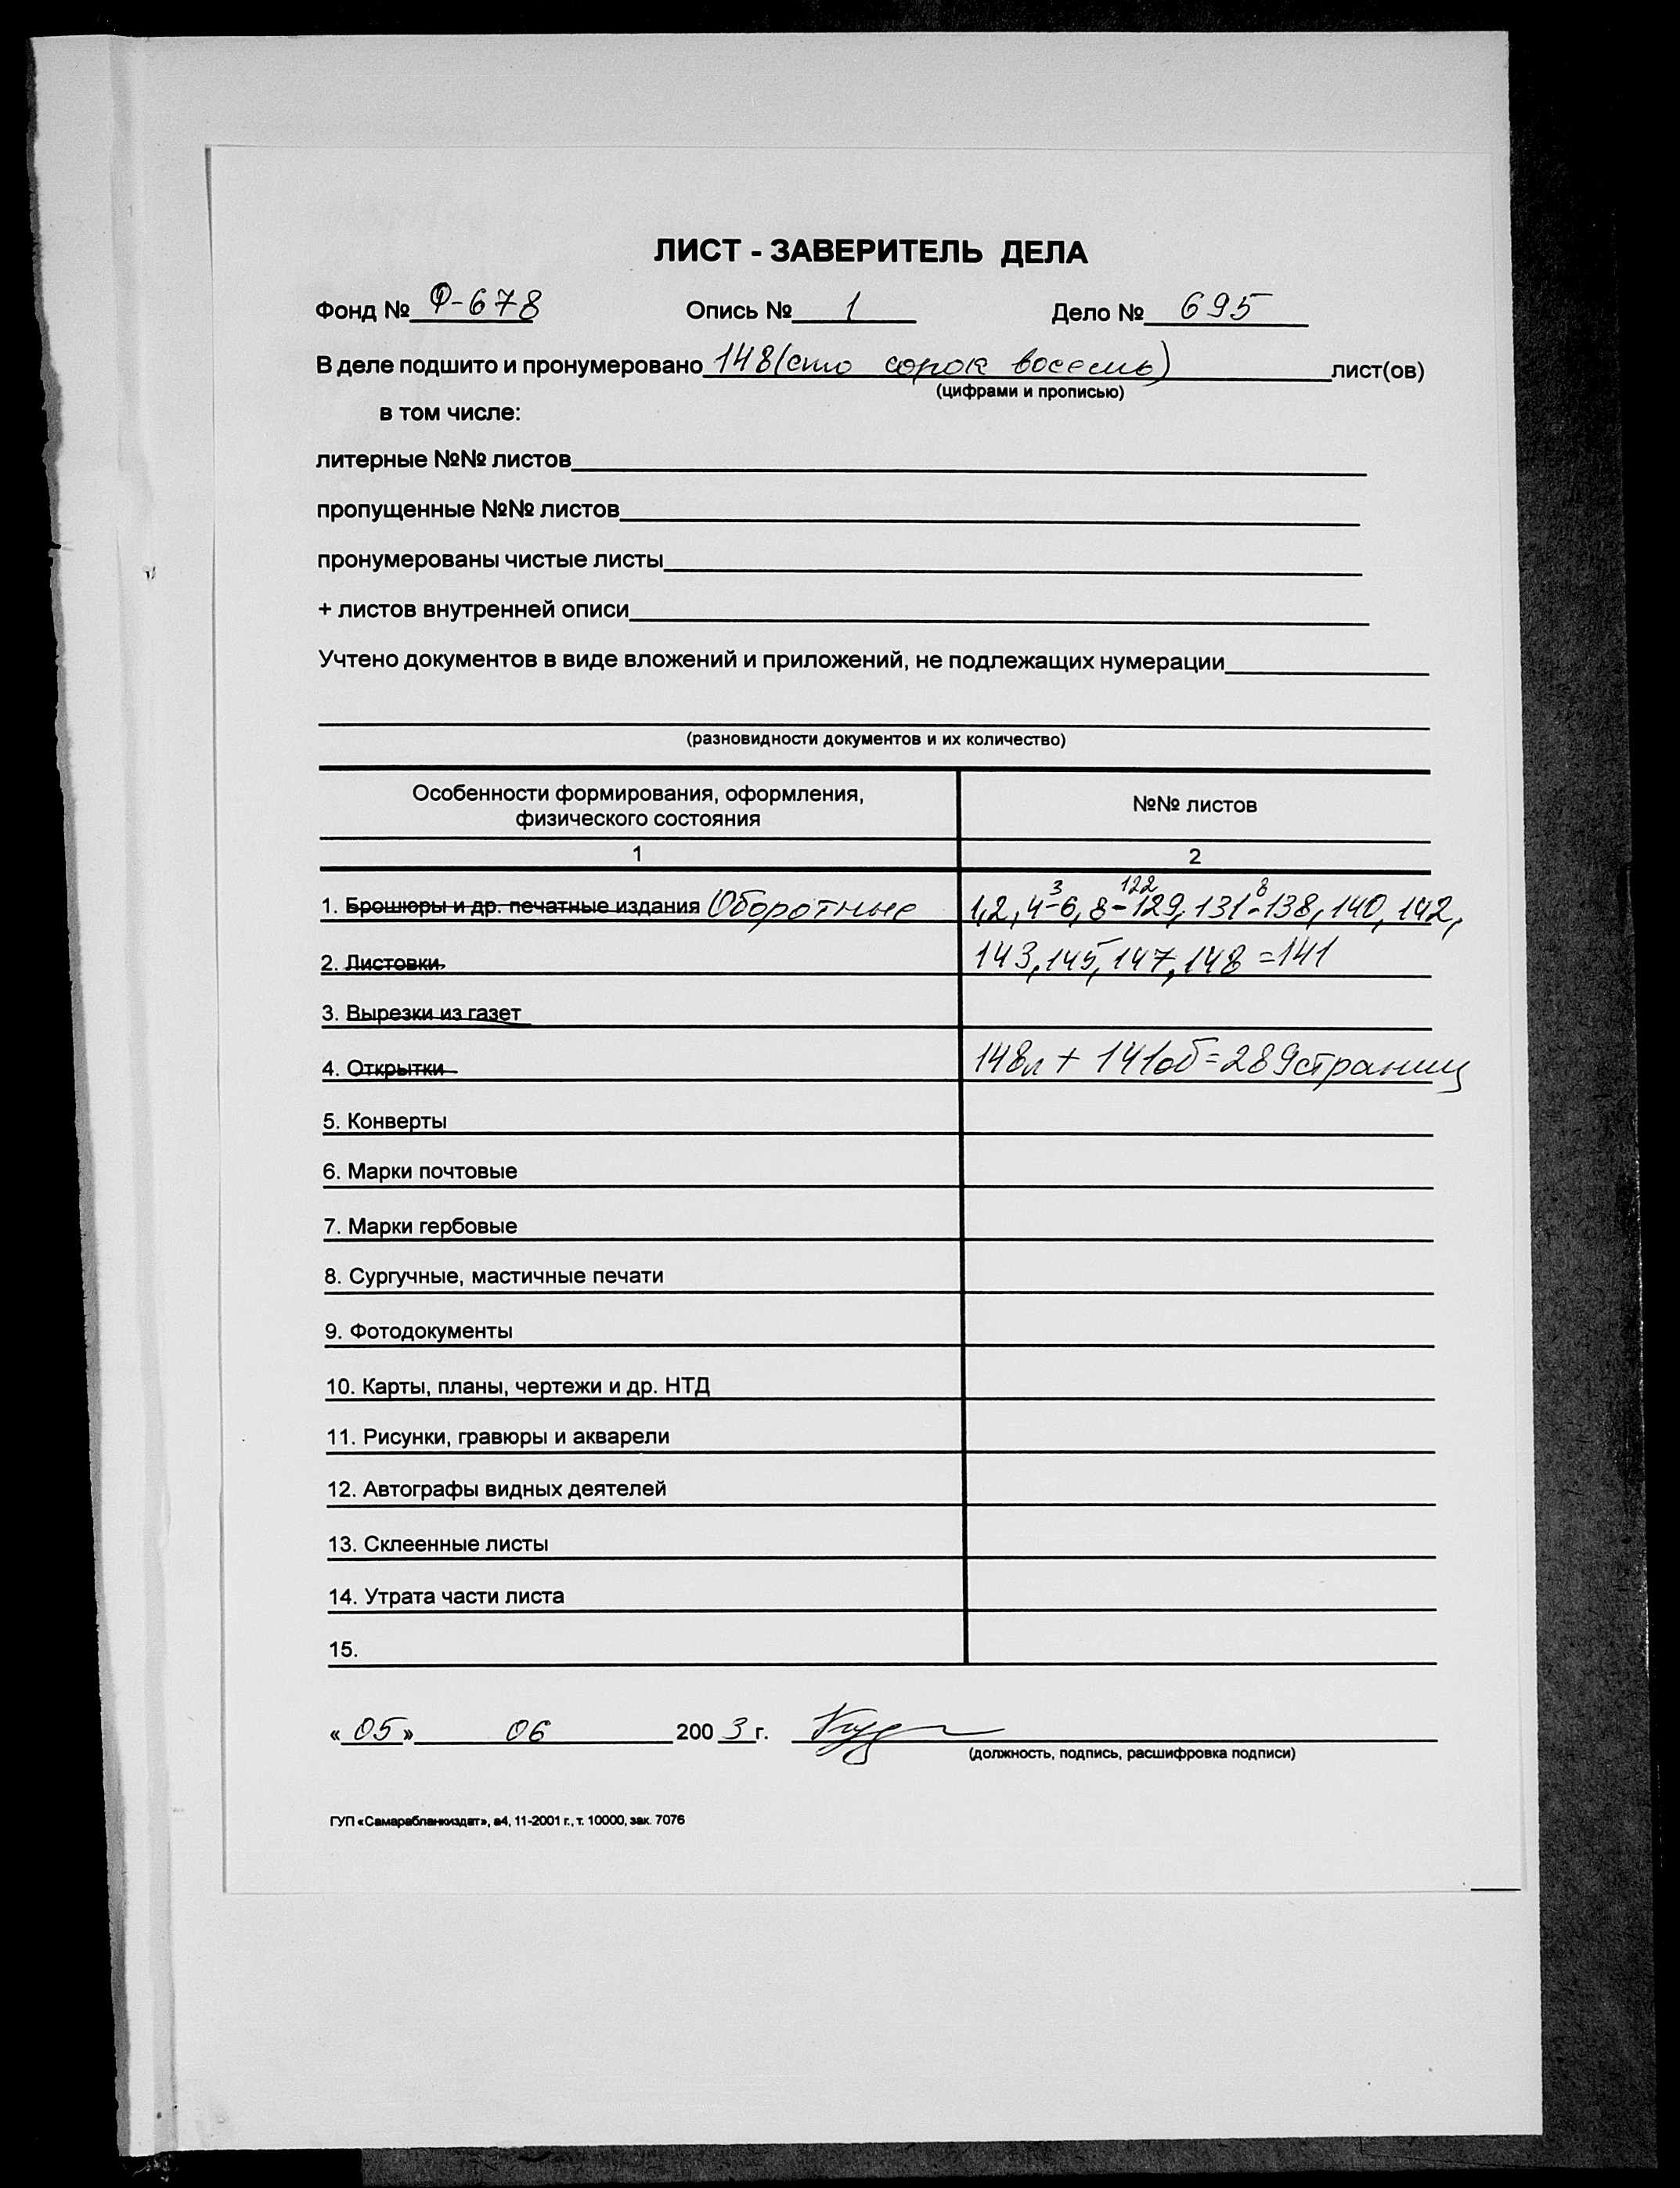 ЛИСТ - ЗАВЕРИТЕЛЬ ДЕЛА
Фонд № Ф-678 Опись № 1 Дело № 695
В деле подшито и пронумеровано 148 (сто сорок восемь) лист(ов)
(цифрами и прописью)
в том числе:
литерные №№ листов
пропущенные №№ листов
пронумерованы чистые листы
+ листов внутренней описи
Учтено документов в виде вложений и приложений, не подлежащих нумерации
(разновидности документов и их количество)
Особенности формирования, оформления,
физического состояния
№№ листов
1 2
3 122 8
1. Брошюры и др. печатные издания Оборотные 1,2,4-6,8-129,131-138,140,142,
2. Листовки 143,145,147,148=141
3. Вырезки из газет
4. Открытки 148л + 141об=289страниц
5. Конверты
6. Марки почтовые
7. Марки гербовые
8. Сургучные, мастичные печати
9. Фотодокументы
10. Карты, планы, чертежи и др. НТД
11. Рисунки, гравюры и акварели
12. Автографы видных деятелей
13. Склеенные листы
14. Утрата части листа
15.
«05» 06 2003 г.
(должность, подпись, расшифровка подписи)
ГУП «Самарабланкиздат», а4, 11-2001 г., т. 10000, зак. 7076